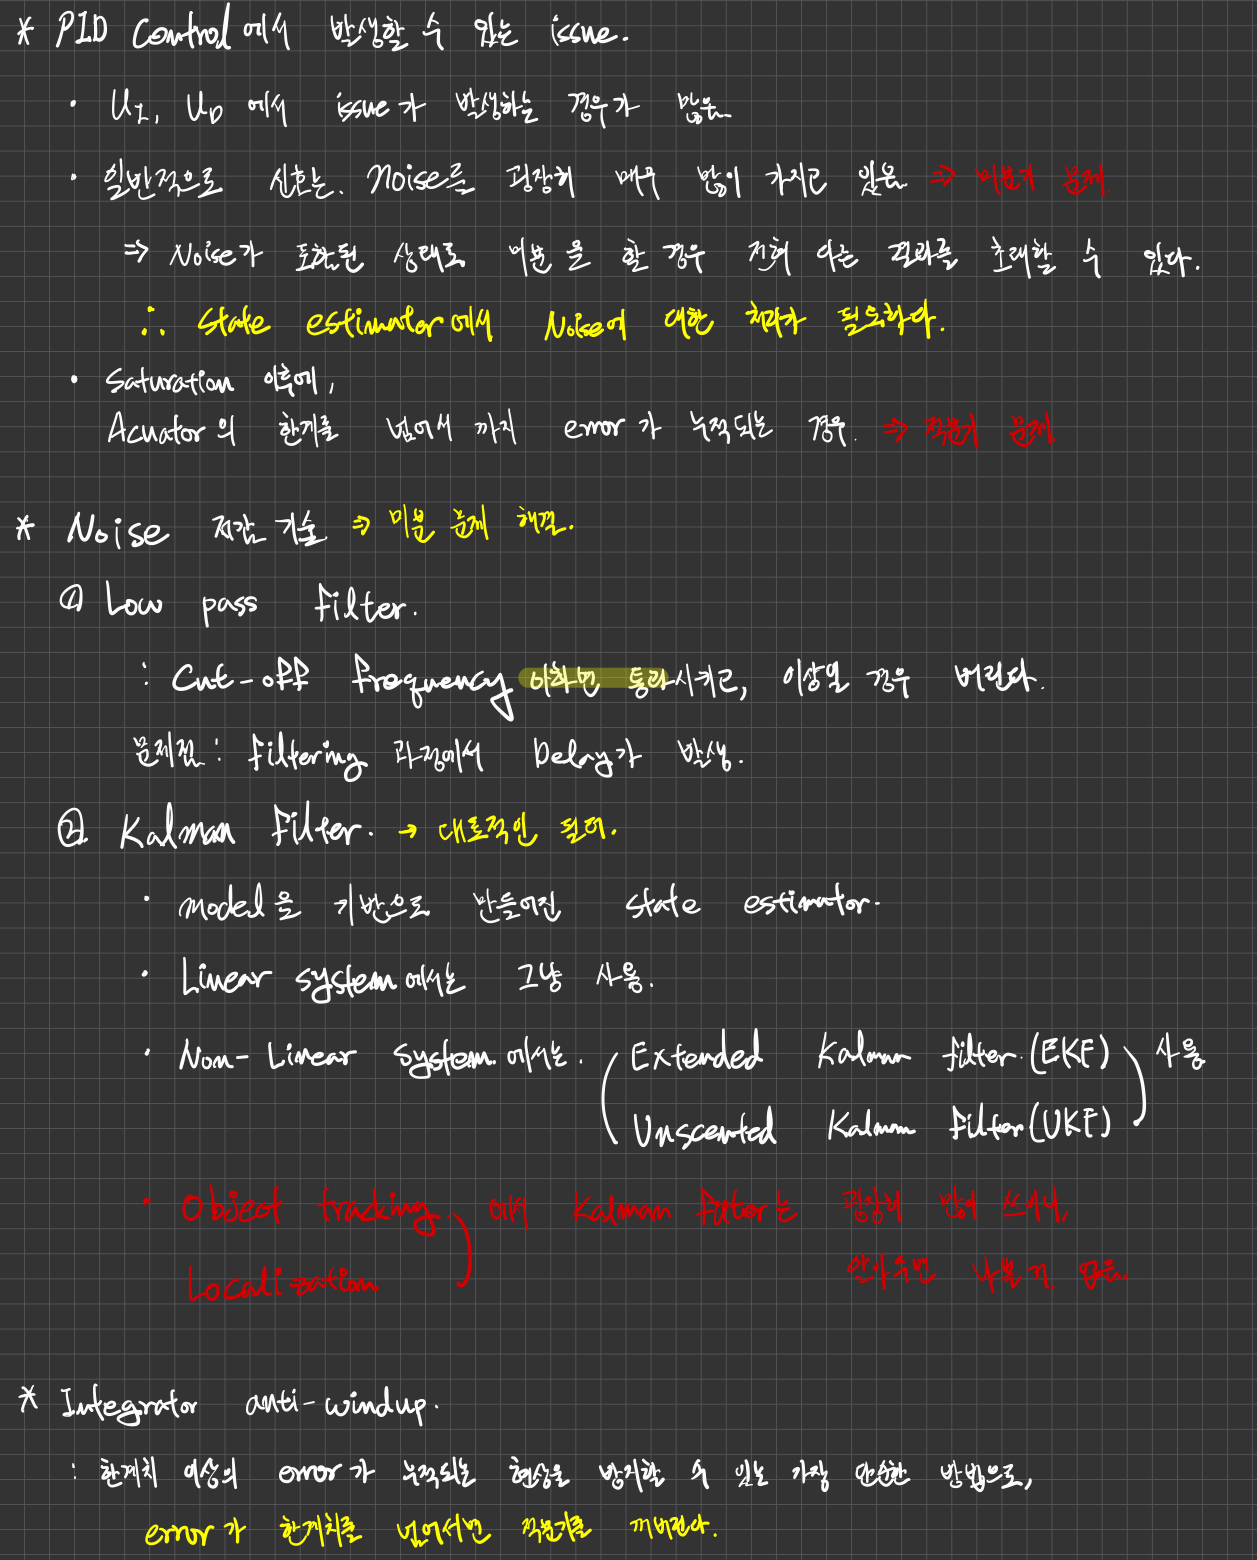 * PID Control에서 발생할 수 있는 issue.
· U_I, U_D 에서 issue가 발생하는 경우가 많음.
· 일반적으로 신호는, Noise를 굉장히 매우 많이 가지고 있음 ⇒ 미분기 문제.
⇒ Noise가 포함된 상태로 미분을 할 경우 전혀 다른 결과를 초래할 수 있다.
∴ State estimator에서 Noise에 대한 처리가 필요하다.
· Saturation 이후에,
Acuator의 한계를 넘어서 까지 error가 누적되는 경우. ⇒ 적분기 문제
* Noise 저감 기술 ⇒ 미분 문제 해결.
① Low pass filter.
: Cut-off frequency 이하면 통과시키고, 이상일 경우 버린다.
문제점 : filtering 과정에서 Delay가 발생.
② Kalman filter. → 대표적인 필터.
· model을 기반으로 만들어진 state estimator.
· Linear system에서는 그냥 사용.
· Non-Linear system에서는. (Extended Kalman filter.(EKF)) 사용
(Unscented Kalman filter(UKF))
· Object tracking 에서 Kalman filter는 굉장히 많이 쓰이니,
Localization 알아두면 나쁠거 없음.
* Integrator anti-windup.
: 한계치 이상의 error가 누적되는 현상을 방지할 수 있는 가장 단순한 방법으로,
error가 한계치를 넘어서면 적분기를 꺼버린다.